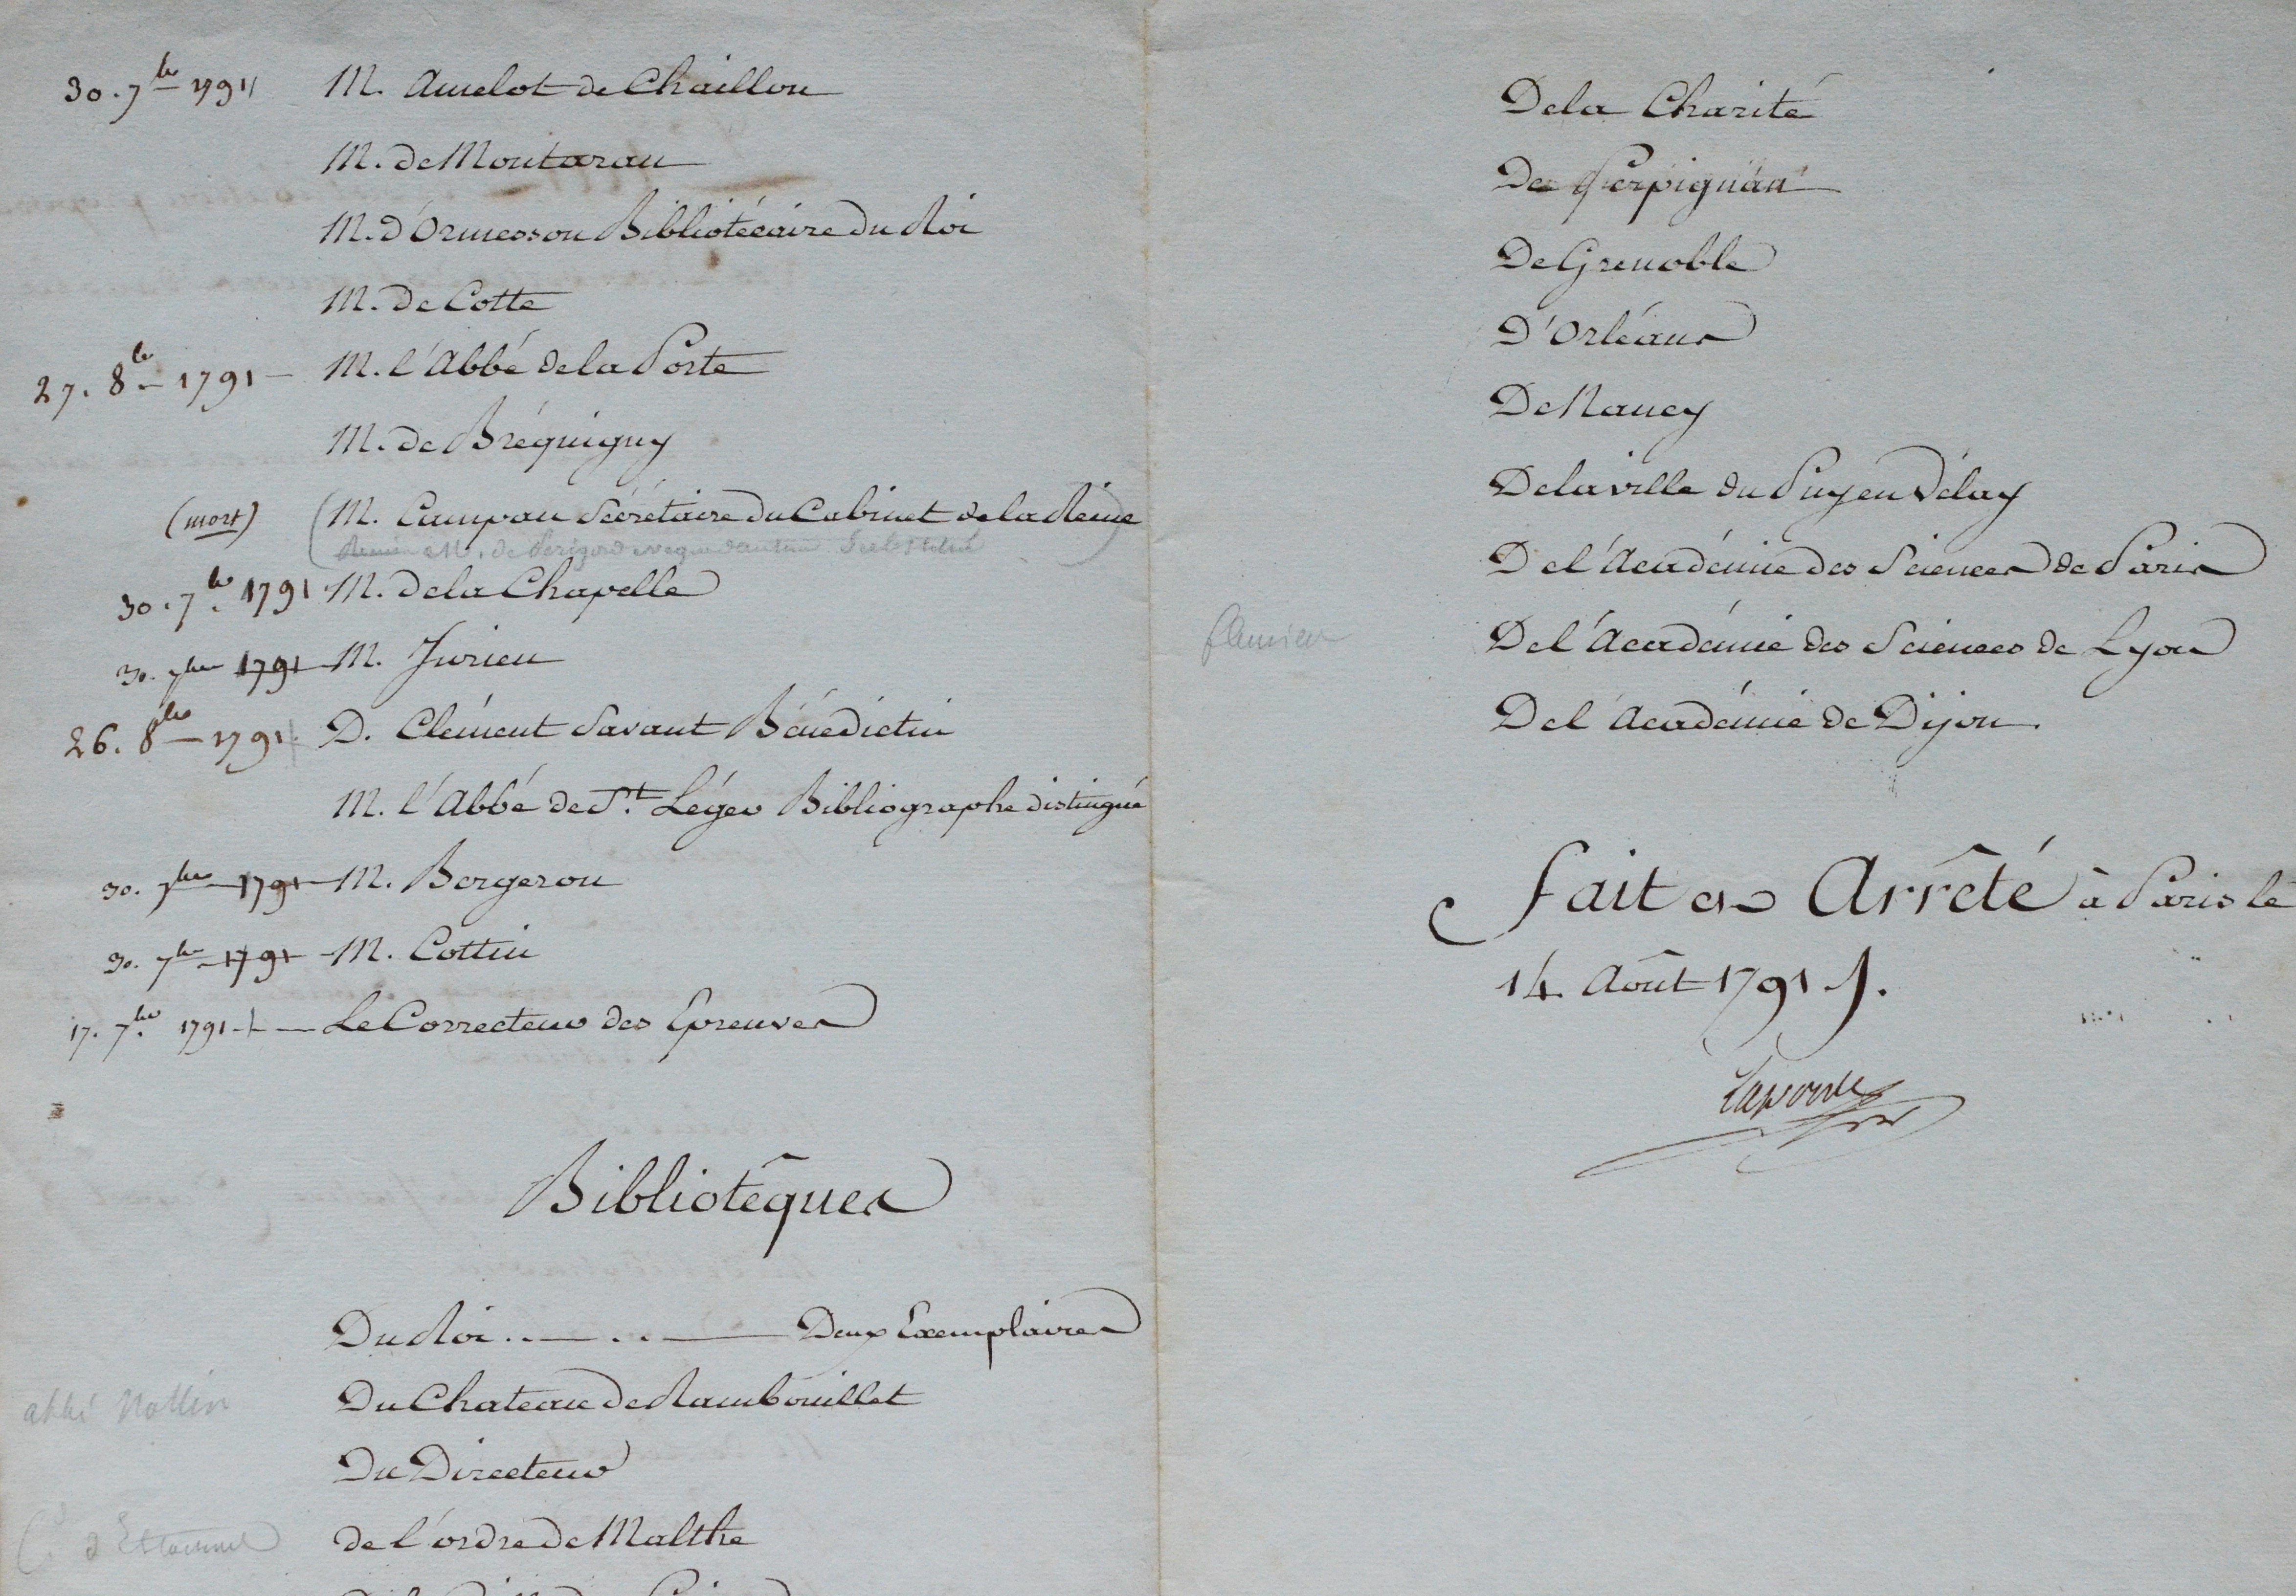 30. 7bre 1791 M. Amelot de Chaillou
M. de Montaran
M. d'Ormesson Bibliotécaire du Roi
M. de Cotte
27. 8bre 1791 – M. l'Abbé de la Porte
M. de Bréquigny
(mort) (M. Campan Sécrétaire du Cabinet de la Reine
M. de Perigord eveque d'autun
30. 7bre 1791 M. de la Chapelle
30. 7bre 1791 M. Jurien
26. 8bre 1791 D. Clément Savant Bénédictin
M. l'Abbé de St. Léger Bibliographe distingué
30. 7bre 1791 M. Bergeron
30. 7bre 1791 M. Cottin
17. 7bre 1791 – Le Correcteur des Epreuves
Bibliotêques
Du Roi . — . . — Deux Exemplaires
abbé Nollin Du Chateau de Rambouillet
Du Directeur
de l'ordre de Malthe
De la Charité
De Perpignan
De Grenoble
D'Orléans
De Nancy
De la ville du Puy en Vélay
De l'Académie des Sciences de Paris
De l'Académie des Sciences de Lyon
De l'Académie de Dijon.
fait et Arrêté à Paris le
14. Août 1791 ./.
Laporte